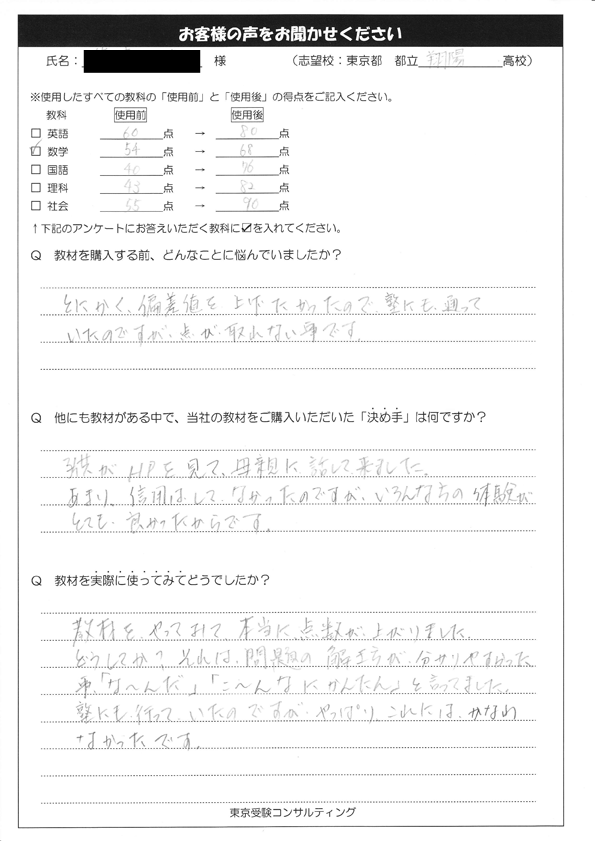 お客様の声をお聞かせください
氏名： 様 （志望校：東京都 都立 翔陽 高校）
※使用したすべての教科の「使用前」と「使用後」の得点をご記入ください。
教科 使用前 使用後
英語 60点 → 80点
数学 54点 → 68点
国語 40点 → 76点
理科 43点 → 82点
社会 55点 → 90点
↑下記のアンケートにお答えいただく教科に☑を入れてください。
Q 教材を購入する前、どんなことに悩んでいましたか？
とにかく、偏差値を上げたかったので、塾にも、通って
いたのですが、点が、取れない事です。
Q 他にも教材がある中で、当社の教材をご購入いただいた「決め手」は何ですか？
子供がHPを見て、母親に話して来ました。
あまり、信用はしてなかったのですが、いろんな方の体験が
とても、良かったからです。
Q 教材を実際に使ってみてどうでしたか？
教材を、やってみて、本当に、点数が、上がりました。
どうしてか？それは、問題の解き方が、分かりやすかった
事、「な〜んだ」「こ〜んなにかんたん」と言ってました。
塾にも、行って、いたのですが、やっぱり、これには、かなわ
なかったです。
東京受験コンサルティング